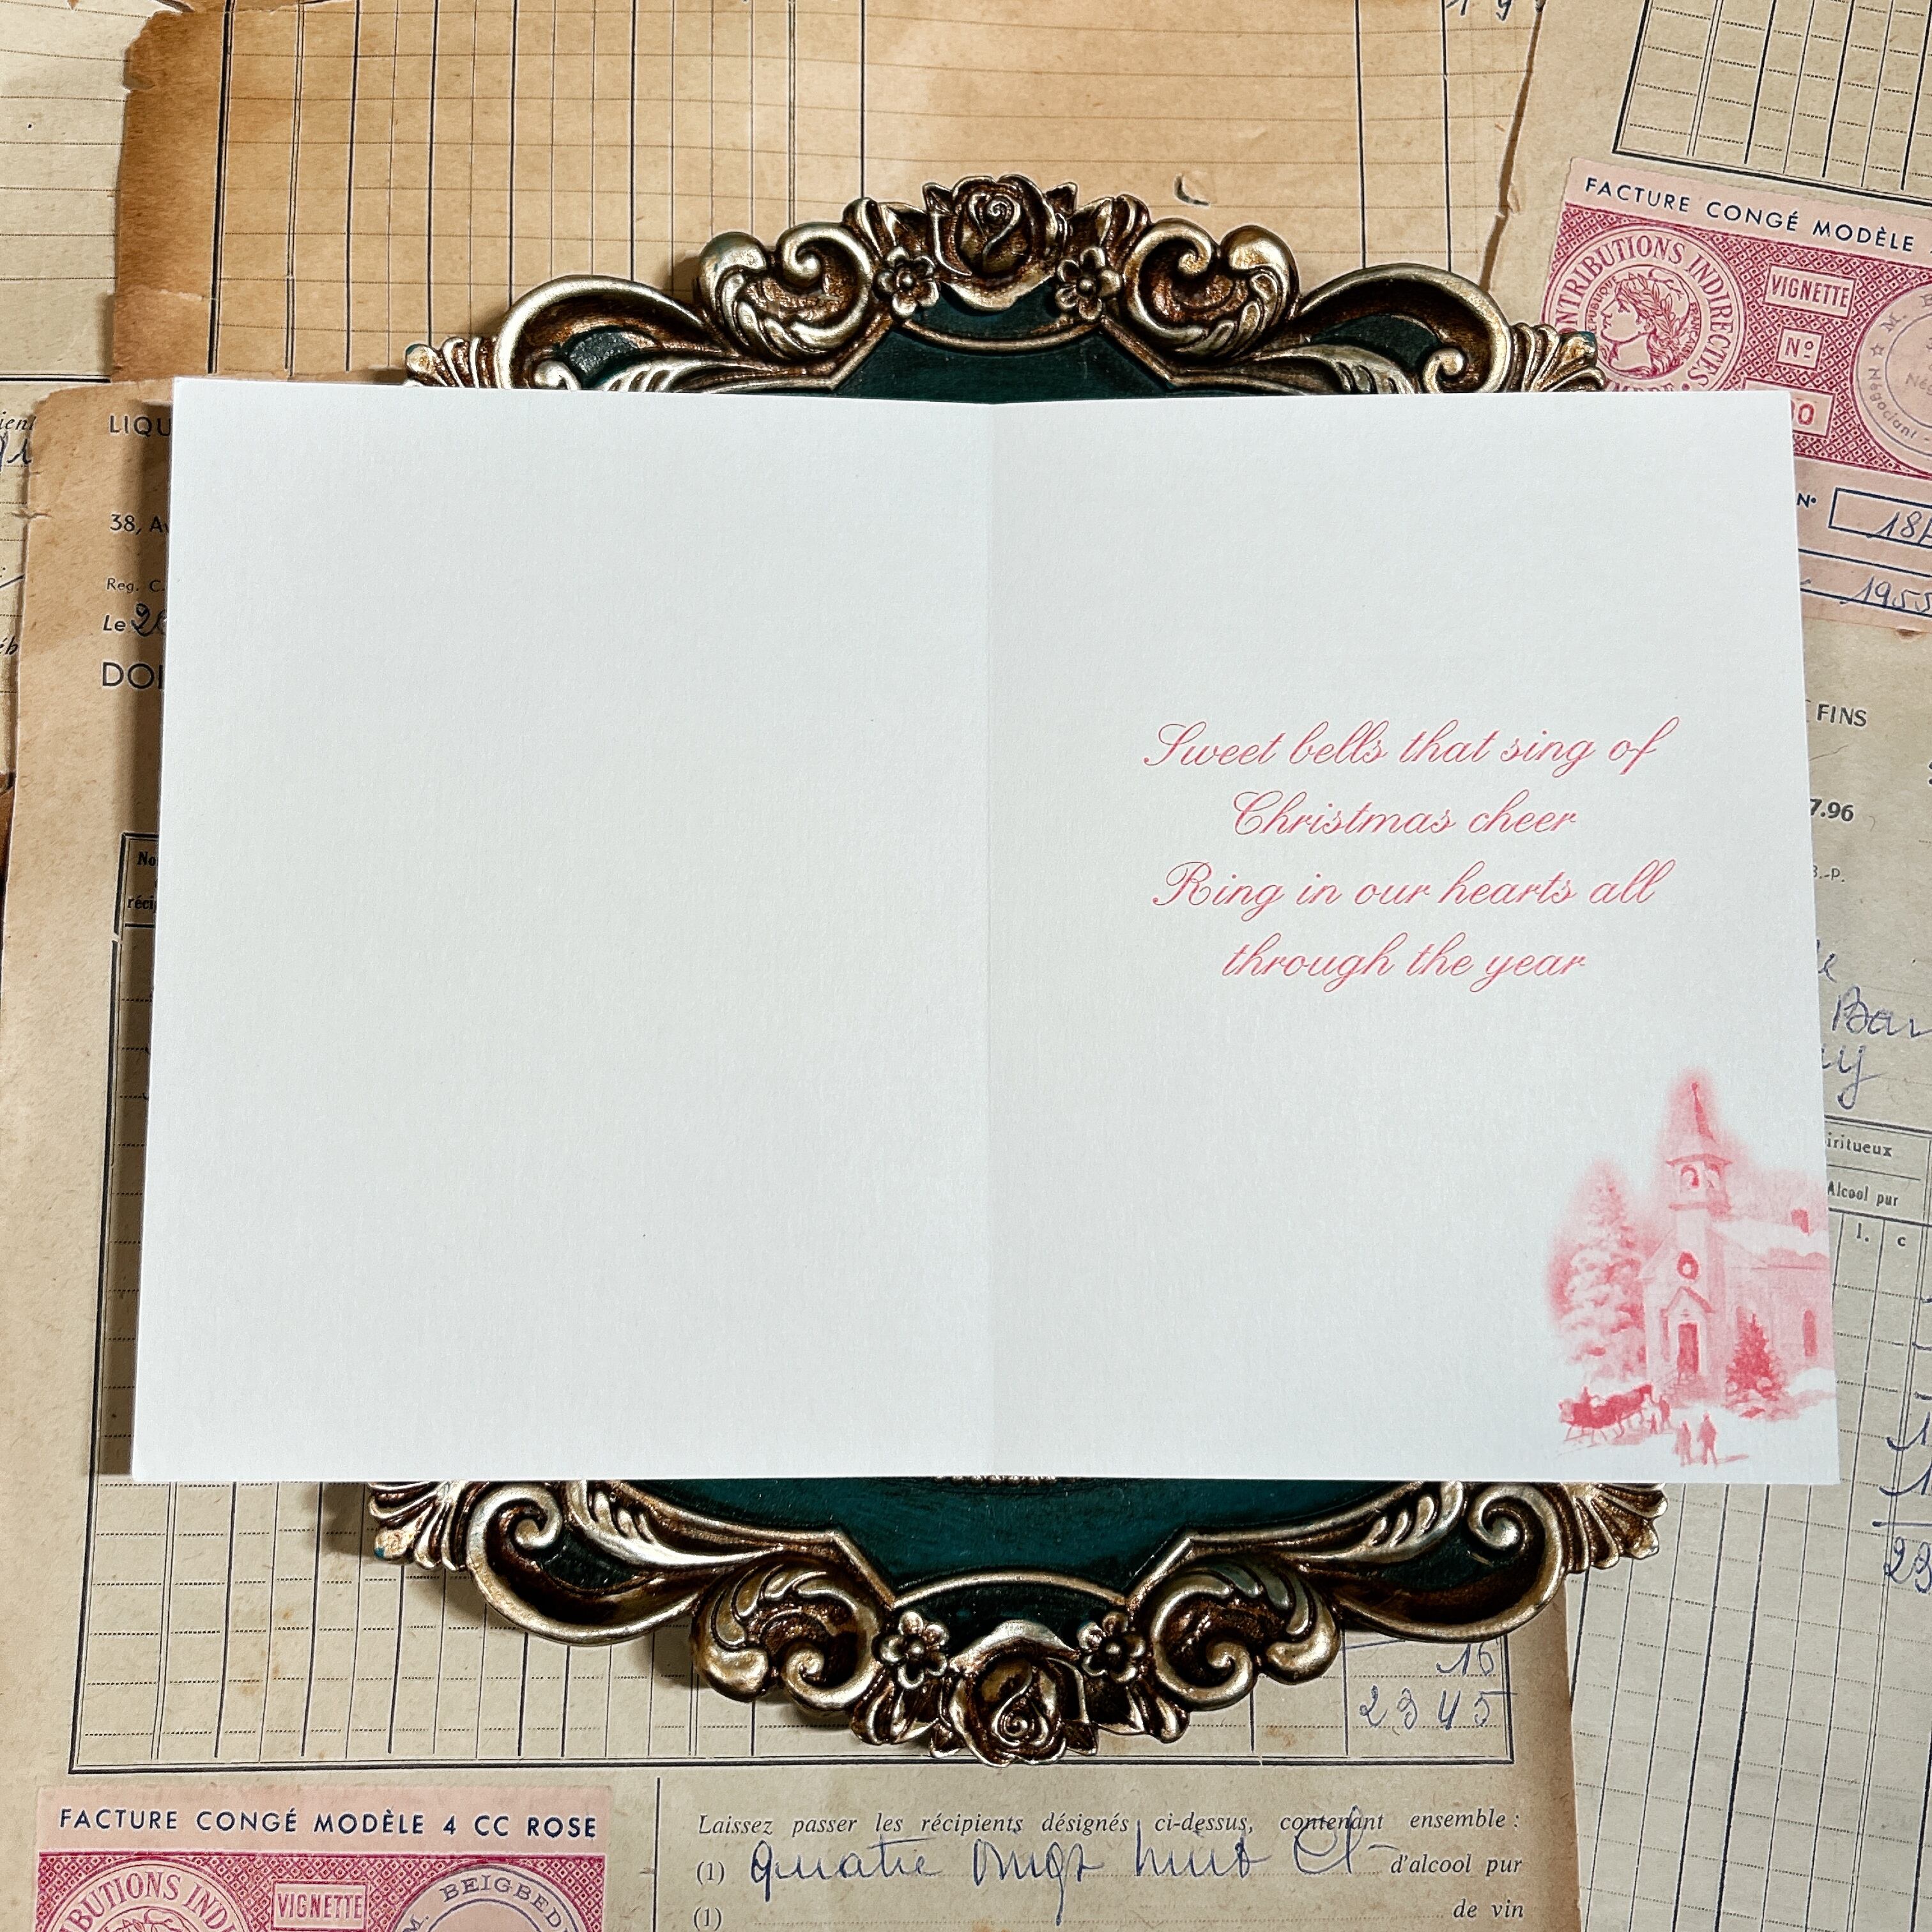 FACTURE CONGÉ MODÈLE
CONTRIBUTIONS INDIRECTES
VIGNETTE
Nº
Négociant
LIQU
38, Av
Reg. C.
Le
DOI
Nº
18
1955
FINS
7.96
Sweet bells that sing of
Christmas cheer
Ring in our hearts all
through the year
Alcool pur
l. c
16
2345
FACTURE CONGÉ MODÈLE 4 CC ROSE
VIGNETTE
M. BEIGBED
Laissez passer les récipients désignés ci-dessus, contenant ensemble :
(1) quatre vingt huit cl d'alcool pur
(1) de vin